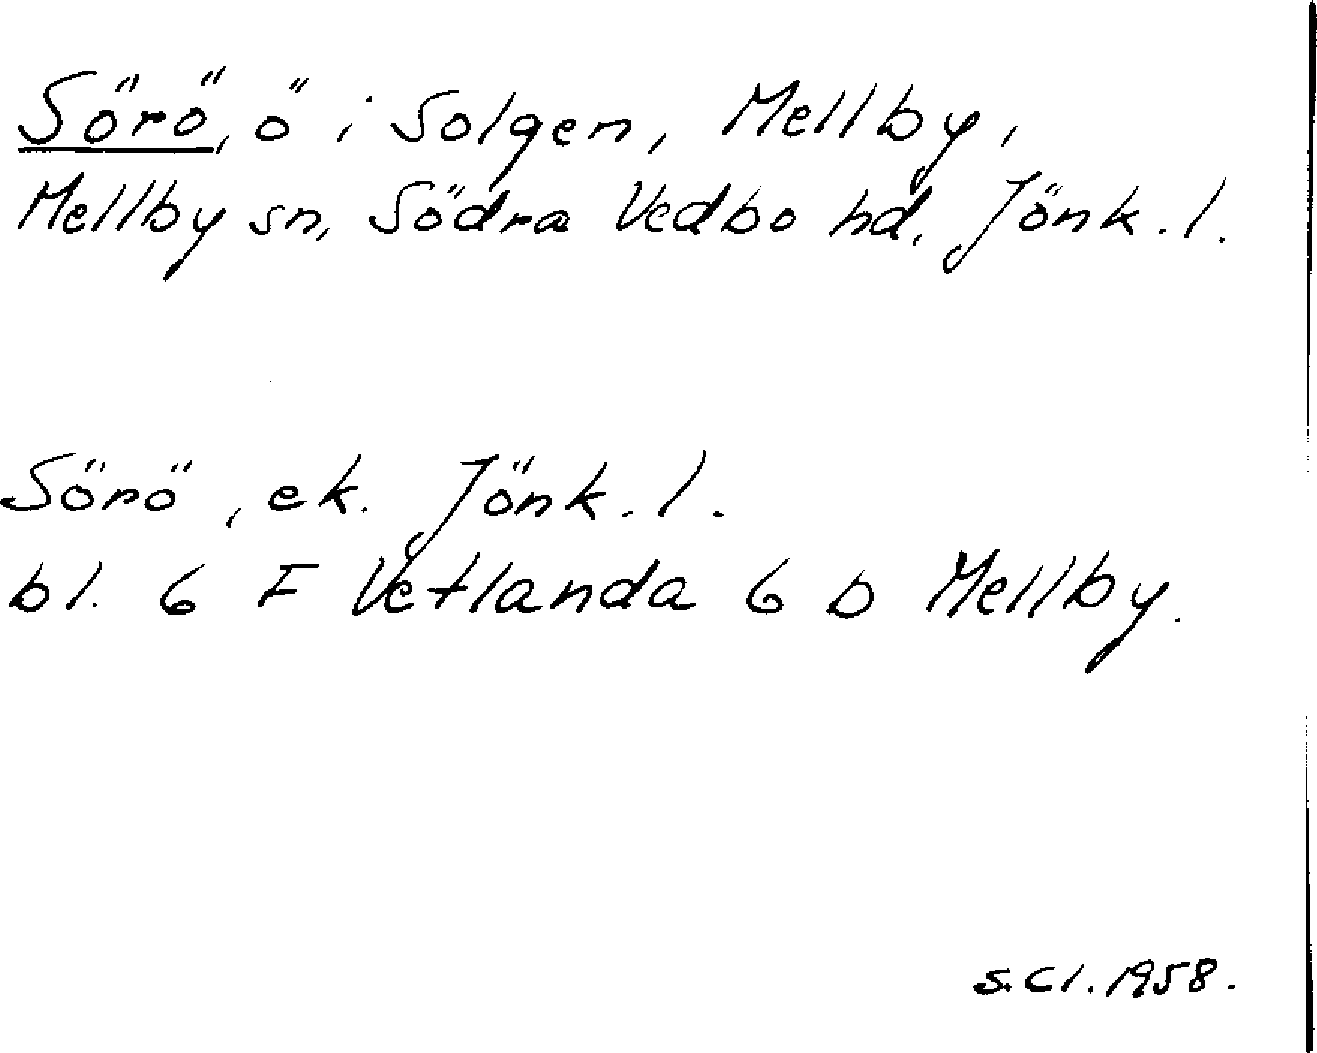 Sörö, ö i Solgen, Mellby,
Mellby sn, Södra Vedbo hd, Jönk. l.
Sörö, ek. Jönk. l.
bl. 6 F Vetlanda 6 b Mellby.
S. Cl. 1958.